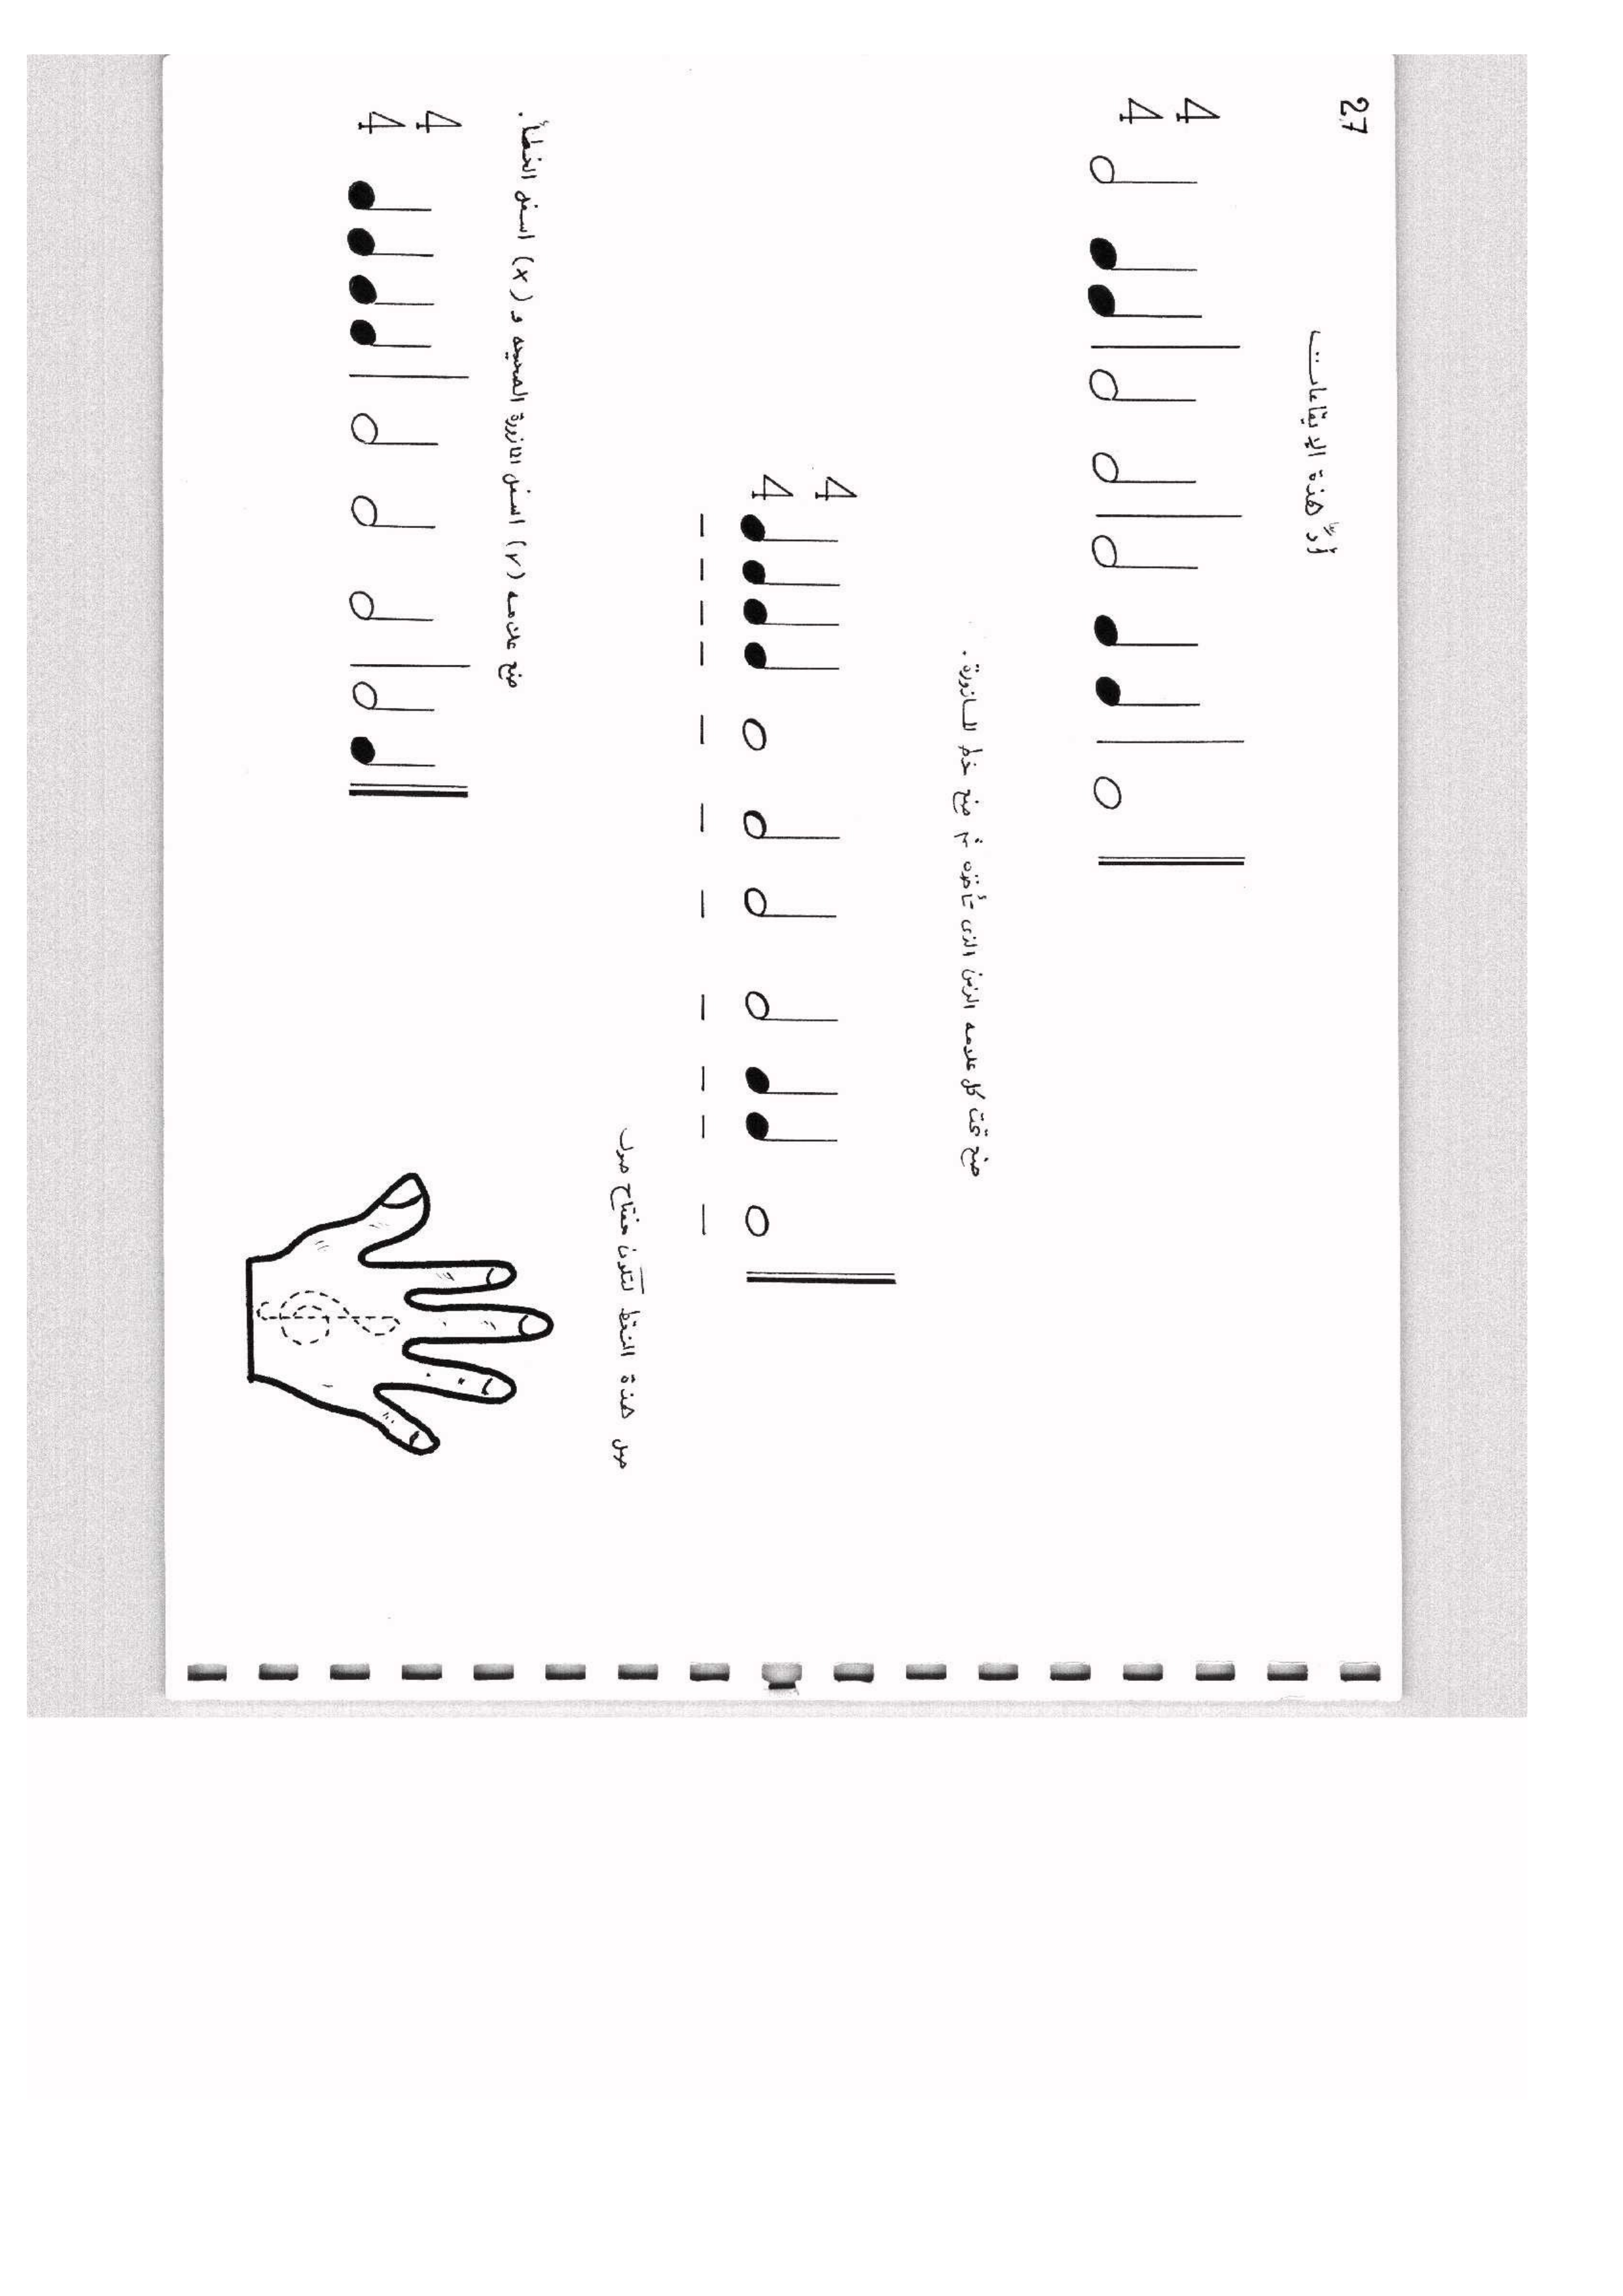 27
أدِّ هذة الإيقاعات
4
4
ضع تحت كل علامه الزمن الذى تأخذه ثم ضع خط المازورة .
4
4
صل هذة النقط لتكون مفتاح صول
ضع علامه (√) اسفل المازورة الصحيحه و (x) اسفل الخطأ .
4
4